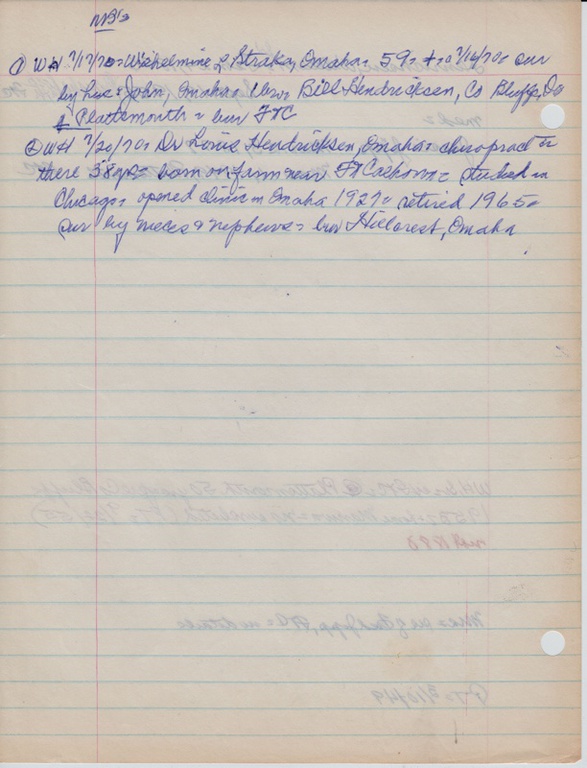 NB's
① WH 7/17/70= Wilhelmine L. Straka, Omaha= 59= + =7/16/70= sur
by hus= John, Omaha= bros Bill Hendricksen, Co Bluffs, Ia
& Plattsmouth = bur FTC
② WH 7/20/70= Dr Louis Hendricksen, Omaha= chiropractor
there 38 yrs= born on farm near Ft Calhoun= studied in
Chicago= opened clinic in Omaha 1927= retired 1965=
sur by nieces & nephews= bur Hillcrest, Omaha